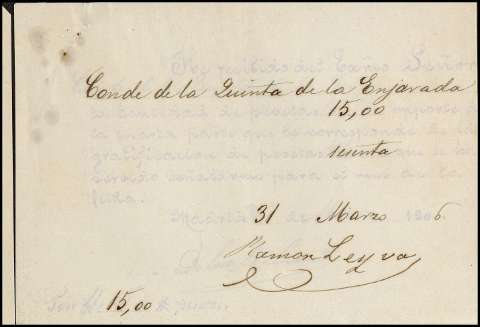 He recibido del Exmo Señor
Conde de la Quinta de la Enjarada
la cantidad de pesetas 15,00 importe de
la cuarta parte que le corresponde de la
gratificacion de pesetas sesenta que se ha
servido señalarme para el mes de la
fecha.
Madrid 31 de Marzo 1906.
Ramon Leyva
Son 15,00 pesetas.